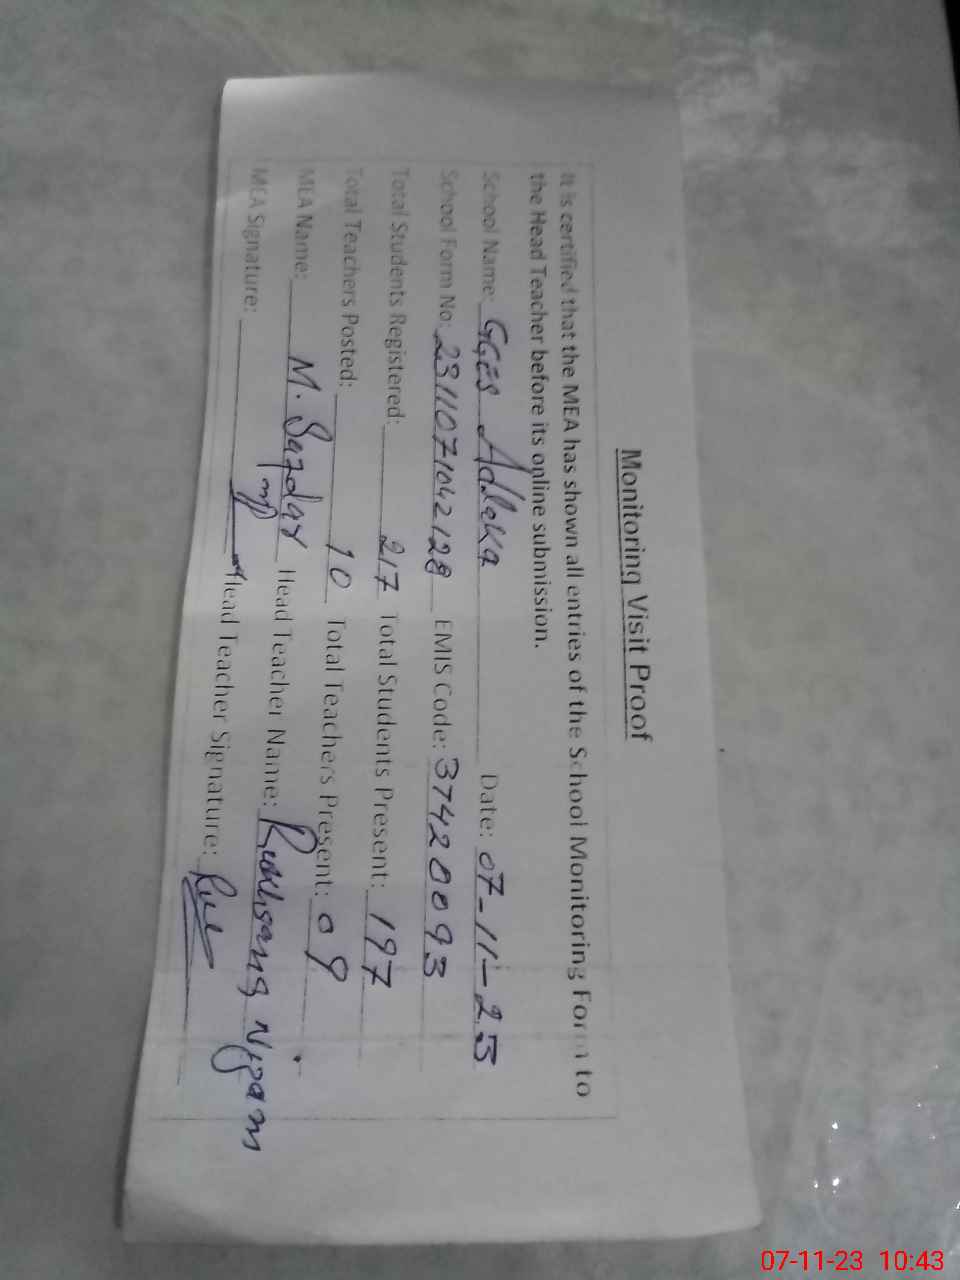 Monitoring Visit Proof
It is certified that the MEA has shown all entries of the School Monitoring Form to
the Head Teacher before its online submission.
School Name: GGES Adleka Date: 07-11-23
School Form No: 231107104212 EMIS Code: 37420093
Total Students Registered: 217 Total Students Present: 197
Total Teachers Posted: 10 Total Teachers Present: 09
MEA Name: M. Safdar Head Teacher Name: Rukhsana Nigam
MEA Signature: Head Teacher Signature:
07-11-23 10:43